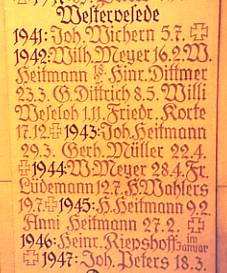 Westervesede
1941: Joh. Wichern 5.7. ✠
1942: Wilh. Meyer 16.2. W.
Heitmann 18.8. Hinr. Dittmer
23.3. G. Dittrich 8.5. Willi
Weseloh 1.11. Friedr. Korte
17.12 ✠ 1943: Joh. Heitmann
29.3. Gerh. Müller 22.4.
✠ 1944: W Meyer 28.4. Fr.
Lüdemann 12.7. H Wahlers
19.7 ✠ 1945: H. Heitmann 9.2.
Anni Heitmann 27.2. ✠
1946: Heinr. Riepshoff im Januar
✠ 1947: Joh. Peters 18.3.